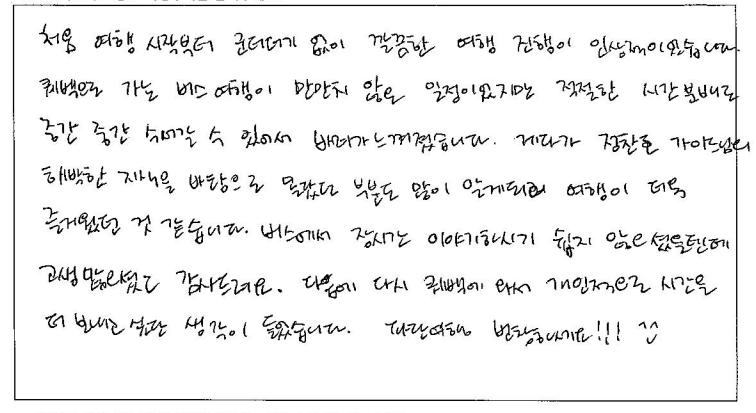 처음 여행 시작부터 군더더기 없이 깔끔한 여행 진행이 인상적이었습니다.
퀘백으로 가는 버스 여행이 만만치 않은 일정이었지만 적절한 시간 분배로
중간 중간 쉬어갈 수 있어서 배려가 느껴졌습니다. 게다가 정찬호 가이드님의
해박한 지식을 바탕으로 몰랐던 부분도 많이 알게되어 여행이 더욱
즐거웠던 것 같습니다. 버스에서 장시간 이야기하시기 쉽지 않으셨을텐데
고생많으셨고 감사드려요. 다음에 다시 퀘백에 와서 개인적으로 시간을
더 보내고 싶단 생각이 들었습니다. 여행 번창하세요!!! ^^